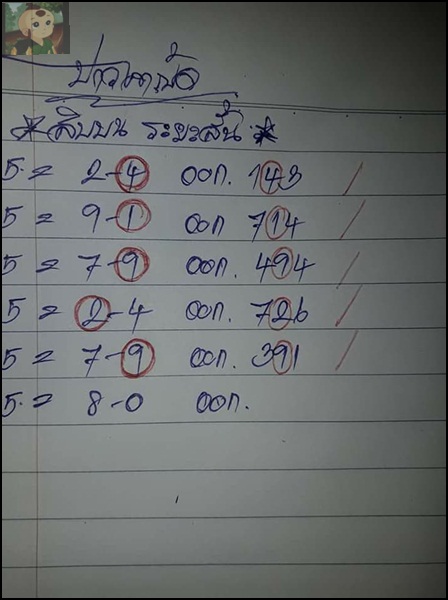 *สิบบน ระยะสั้น*
5 = 2-4 ออก. 143 /
5 = 9-1 ออก 714 /
5 = 7-9 ออก. 494 /
5 = 2-4 ออก. 726 /
5 = 7-9 ออก. 391 /
5. = 8-0 ออก.